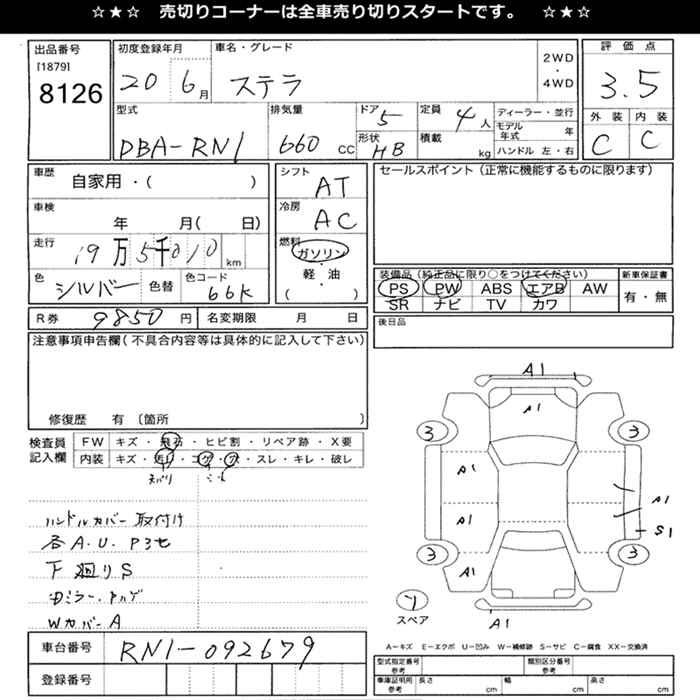 ☆★☆ 売切りコーナーは全車売り切りスタートです。 ☆★☆
出品番号
[1879]
8126
初度登録年月
20 6月
車名・グレード
ステラ
2WD
・
4WD
評価点
3.5
外装 内装
C C
型式
DBA-RN1
排気量
660 CC
ドア 5
形状 HB
定員 4人
積載 kg
ディーラー・並行
モデル年式 年
ハンドル 左・右
車歴
自家用・( )
車検
年 月( 日)
走行
19万5千010 km
色
シルバー
色替
色コード
66K
シフト
AT
冷房
AC
燃料
ガソリン
・
軽・油
( )
セールスポイント(正常に機能するものに限ります)
装備品(純正品に限り○をつけてください)
PS PW ABS エアB AW
SR ナビ TV カワ
新車保証書
有・無
R券 9850円 名変期限 月 日
後日品
注意事項申告欄(不具合内容等は具体的に記入して下さい)
修復歴 有〔箇所 〕
検査員
記入欄
FW キズ・飛石・ヒビ割・リペア跡・X要
内装 キズ・汚れ・コゲ・穴・スレ・キレ・破れ
ハンドルカバー取付け
各A.U. P3セ
下廻りS
WカバーA
A1
A1
3 3
A1
A1
A1
S1
3 3
A1
スペア
A1
A―キズ E―エクボ U―凹み W―補修跡 S―サビ C―腐食 XX―交換済
車台番号
RN1-092679
登録番号
型式指定番号
参考
類別区分番号
参考
車庫証明用
参考
長さ cm 幅 cm 高さ cm